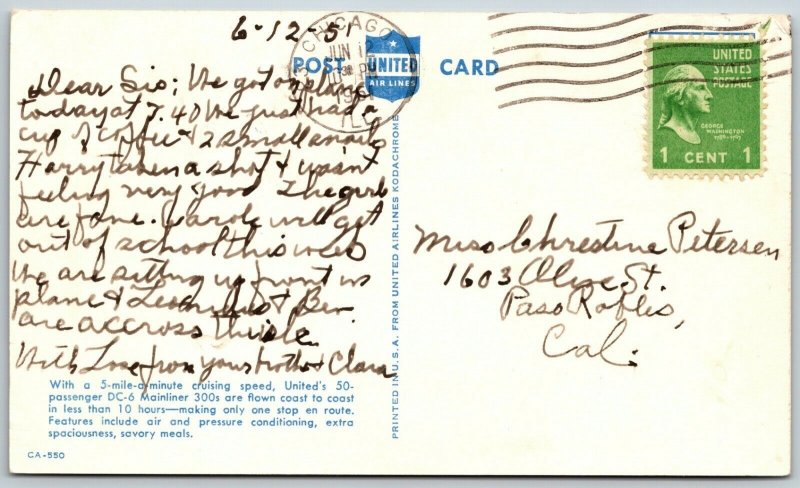 6-12-51
CHICAGO
JUN 12
1951
ILL.
POST UNITED CARD
AIR LINES
UNITED
STATES
POSTAGE
GEORGE
WASHINGTON
1789-1797
1 CENT 1
Dear Sis; We got on plane
today at 7.40 We just had a
cup of coffee & 2 small
Harry taken a shot & wasn't
feeling very good The girls
are fine. Carole will get
out of school this week
We are sitting up front in
plane & & Ben
are accross
With Love from your brother & Clara
Miss Chrestine Petersen
1603 Olive St.
Paso Robles,
Cal.
PRINTED IN U.S.A. FROM UNITED AIRLINES KODACHROME
With a 5-mile-a-minute cruising speed, United's 50-
passenger DC-6 Mainliner 300s are flown coast to coast
in less than 10 hours—making only one stop en route.
Features include air and pressure conditioning, extra
spaciousness, savory meals.
CA-550